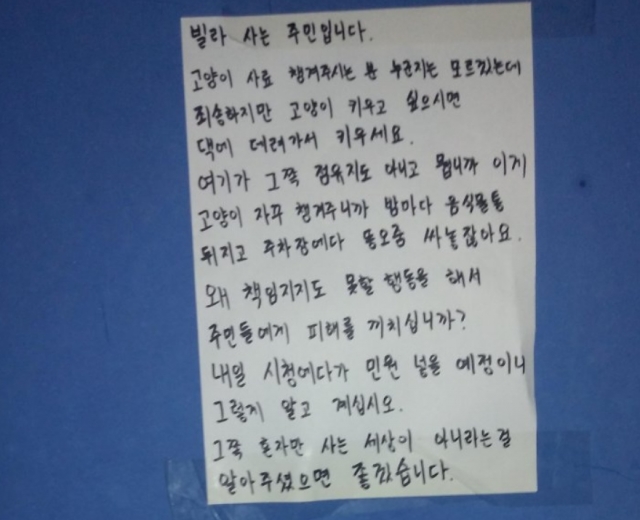 빌라 사는 주민입니다.
고양이 사료 챙겨주시는 분 누군지는 모르겠는데
죄송하지만 고양이 키우고 싶으시면
댁에 데려가서 키우세요.
여기가 그쪽 점유지도 아니고 뭡니까 이게
고양이 자꾸 챙겨주니까 밤마다 음식물통
뒤지고 주차장에다 똥오줌 싸놓잖아요.
왜 책임지지도 못할 행동을 해서
주민들에게 피해를 끼치십니까?
내일 시청에다가 민원 넣을 예정이니
그렇게 알고 계십시오.
그쪽 혼자만 사는 세상이 아니라는걸
알아주셨으면 좋겠습니다.